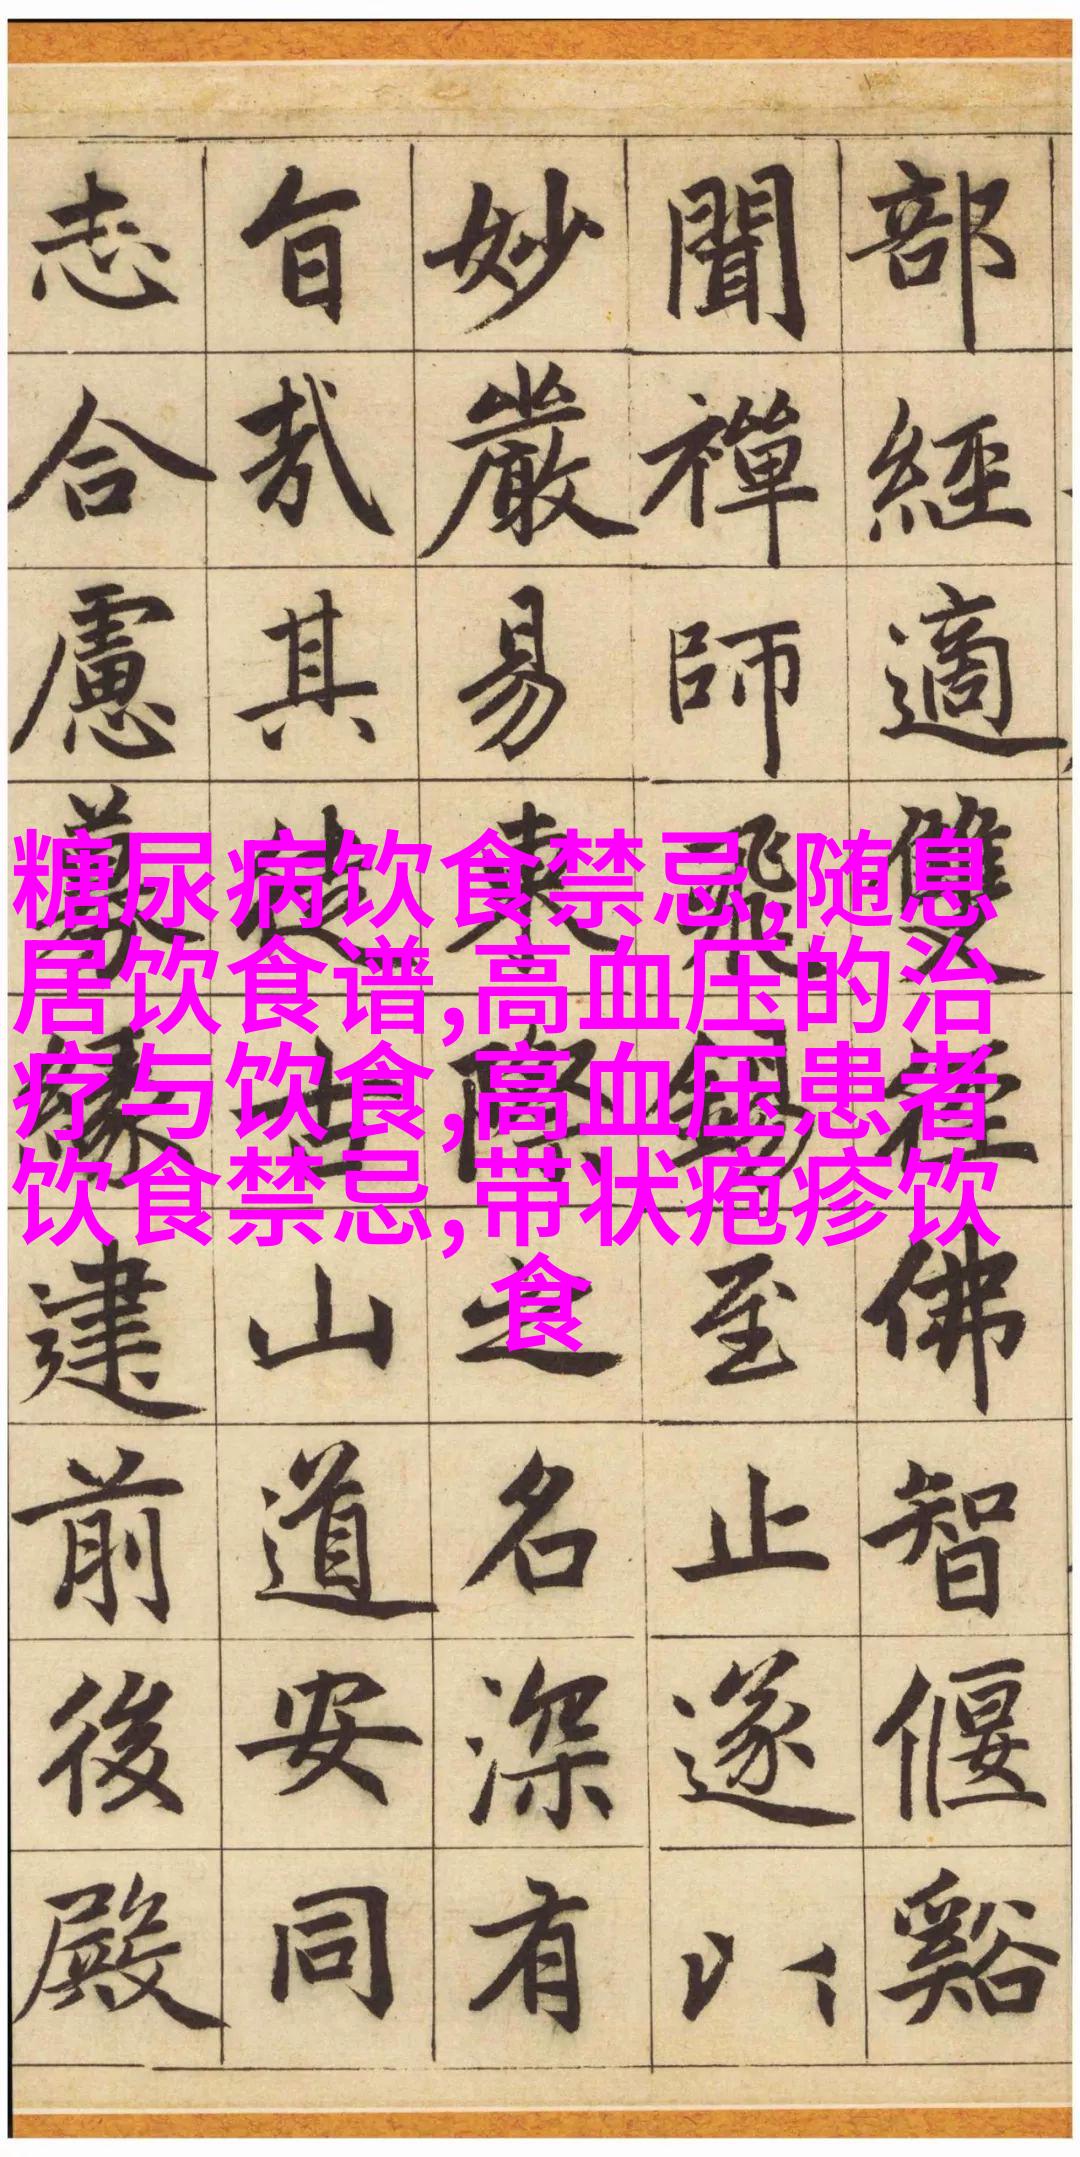 糖尿病饮食禁忌,随息
居饮食谱,高血压的治
疗与饮食,高血压患者
饮食禁忌,带状疱疹饮
食
部經適雙徑佛智偃谿
聞禪師飛錫至止遂以
妙嚴易東際之名深有
旨哉其徒古山道安同
志合慮募緣建前後殿